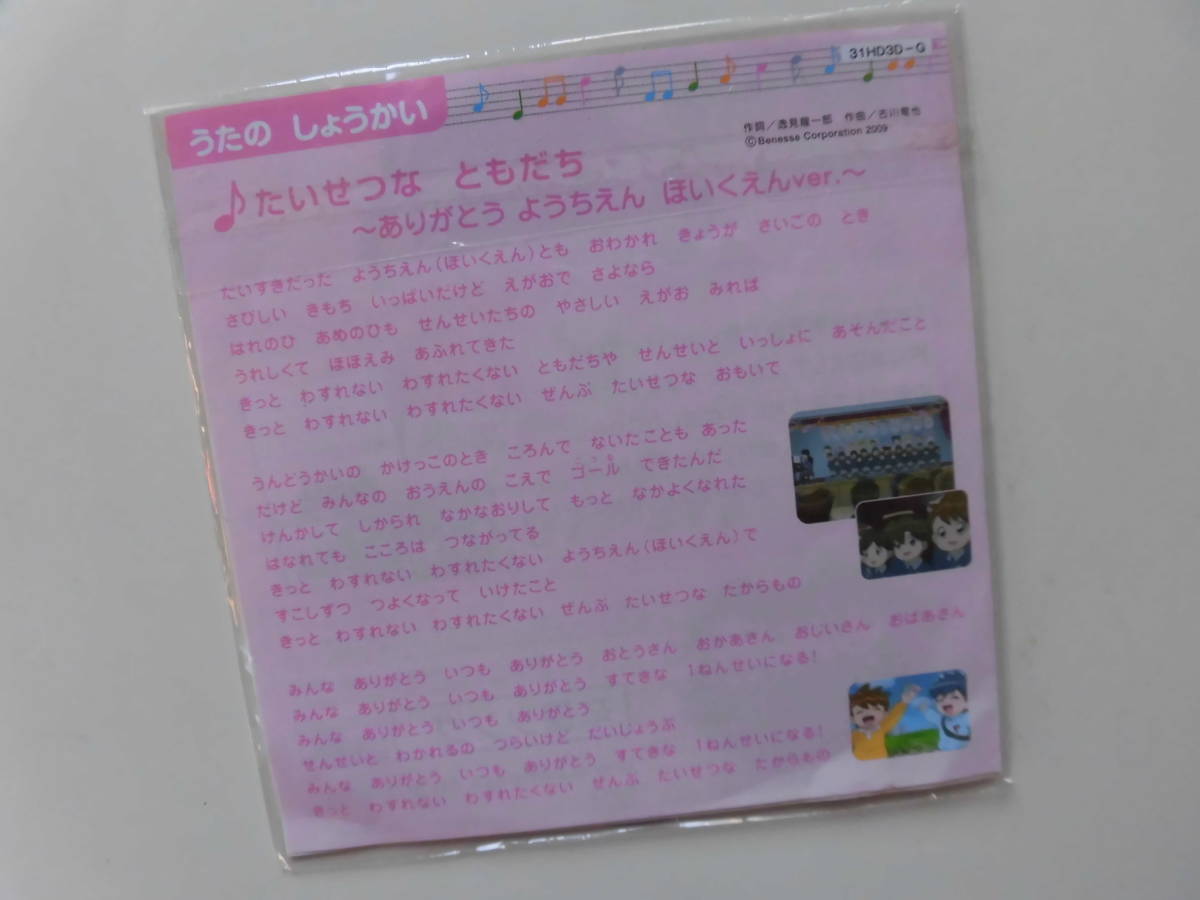 31HD3D-G
うたの しょうかい
作詞／逸見龍一郎 作曲／古川竜也
©Benesse Corporation 2009
♪たいせつな ともだち
～ありがとう ようちえん ほいくえんver.～
だいすきだった ようちえん(ほいくえん)とも おわかれ きょうが さいごの とき
さびしい きもち いっぱいだけど えがおで さよなら
はれのひ あめのひも せんせいたちの やさしい えがお みれば
うれしくて ほほえみ あふれてきた
きっと わすれない わすれたくない ともだちや せんせいと いっしょに あそんだこと
きっと わすれない わすれたくない ぜんぶ たいせつな おもいで
うんどうかいの かけっこのとき ころんで ないたことも あった
だけど みんなの おうえんの こえで ゴール できたんだ
けんかして しかられ なかなおりして もっと なかよくなれた
はなれても こころは つながってる
きっと わすれない わすれたくない ようちえん(ほいくえん)で
すこしずつ つよくなって いけたこと
きっと わすれない わすれたくない ぜんぶ たいせつな たからもの
みんな ありがとう いつも ありがとう おとうさん おかあさん おじいさん おばあさん
みんな ありがとう いつも ありがとう すてきな 1ねんせいになる!
みんな ありがとう いつも ありがとう
せんせいと わかれるの つらいけど だいじょうぶ
みんな ありがとう いつも ありがとう すてきな 1ねんせいになる!
きっと わすれない わすれたくない ぜんぶ たいせつな たからもの